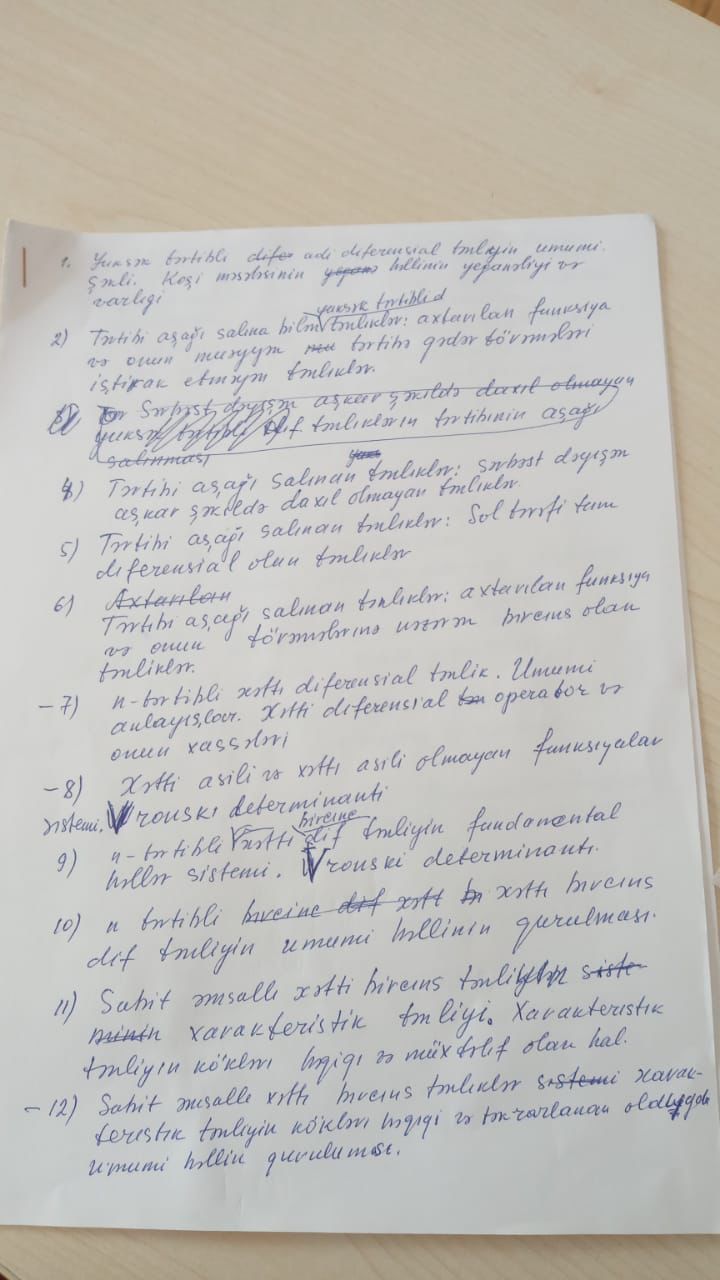 1. Yüksək tərtibli difer adi diferensial tənliyin umumi
şəkli. Koşi məsələsinin həllinin yeganəliyi və
varlığı
yüksək tərtibli d
2) Tərtibi aşağı salına bilən tənliklər: axtarılan funksiya
və onun müəyyən tərtibə qədər törəmələri
iştirak etməyən tənliklər.
Sərbəst dəyişən aşkar şəkildə daxil olmayan
yüksək tərtibli dif tənliklərin tərtibinin aşağı
salınması
4) Tərtibi aşağı salınan tənliklər: sərbəst dəyişən
aşkar şəkildə daxil olmayan tənliklər.
5) Tərtibi aşağı salınan tənliklər: Sol tərəfi tam
diferensial olan tənliklər
6) Axtarılan
Tərtibi aşağı salınan tənliklər: axtarılan funksiya
və onun törəmələrinə nəzərən bircins olan
tənliklər.
-7) n-tərtibli xətti diferensial tənlik. Umumi
anlayışlar. Xətti diferensial tən operator və
onun xassələri
-8) Xətti asılı və xətti asılı olmayan funksiyalar
sistemi. Vronski determinantı
bircins
9) n-tərtibli xətti dif tənliyin fundamental
həllər sistemi. Vronski determinantı.
10) n tərtibli bircinc dif xətt xətti bircins
dif tənliyin umumi həllinin qurulması.
11) Sabit əmsallı xətti bircins tənliyin siste-
minin xarakteristik tənliyi. Xarakteristik
tənliyin kökləri həqiqi və müxtəlif olan hal.
-12) Sabit əmsallı xətti bircins tənliklər sistemi xarak-
teristik tənliyin kökləri həqiqi və təkrarlanan olduqda
umumi həllin qurulması.